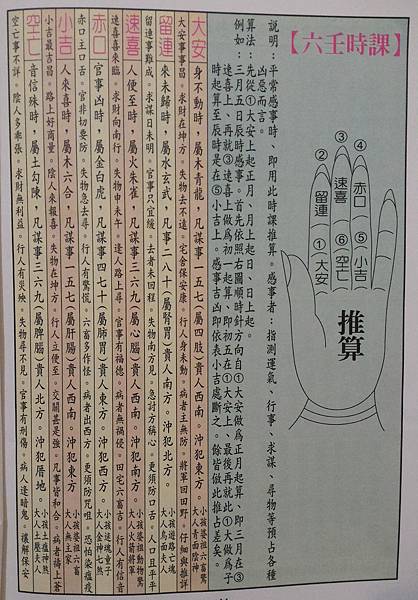 【六壬時課】
說明：平常感事時、即用此時課推算。感事者：指測運氣、行事、求謀、尋物等預占各種
凶吉而言。
算法：先從①大安上起正月、月上起日、日上起。
例如：三月五日辰時感事。首先依照右圖順時針方向自①大安做為正月起算、即三月在③
速喜上、再就③速喜上做為初一起算、即初五在①大安上、最後再就此①大安做為子
時起算至辰時是在⑤小吉上。感事吉凶即依表小吉處斷之。餘皆做此推占差矣。
②留連
③速喜
④赤口
①大安
⑥空亡
⑤小吉
推算
大安 身不動時，屬木青龍，凡謀事一五七屬四肢，貴人西南，沖犯東方。小孩婆祖六畜驚 大人青面陰神
大安事事昌。求財在坤方。失物去不遠。宅舍保安康。行人身未動。病者主無防。將軍回田野。仔細與推詳
留連 來未歸時，屬水玄武，凡謀事二八十屬腎胃，貴人南方。沖犯北方。小孩遊路亡魂 大人烏面夫人
留連事難成。求謀日未明。官事只宜緩。去者未回程。失物南方見。急討方稱心。更須防口舌。人口且平平
速喜 人便至時，屬火朱雀，凡謀事三六九屬心腦，貴人西南，沖犯南方。小孩婆祖動物驚 大人火箭將軍
速喜喜來臨。求財向南行。失物申未午。逢人路上尋。官事有福德。病者無禍侵。田宅六畜吉。行人有信音
赤口 官事凶時，屬金白虎，凡謀事四七十屬肺胃，貴人東方，沖犯西方。小孩迷魂童子 大人金神七煞
赤口主口舌。官非切要防。失物急去尋。行人有驚慌。六畜多作怪。病者出西方。更須防咒咀。恐怕染瘟疫
小吉 人來喜時，屬木六合，凡謀事一五七屬肝腸，貴人西南，沖犯東方。小孩婆祖六畜 大人無主家
小吉最吉昌。路上好商量。陰人來報喜。失物在坤方。行人立便至。交關甚是強。凡事皆和合。病者禱上蒼
空亡 音信殊時，屬土勾陳，凡謀事三六九屬脾腦，貴人北方。沖犯厝地。小孩土瘟神煞 大人土壓夫人
空亡事不詳。陰人多乖張。求財無利益。行人有災殃。失物尋不見。官事有刑傷。病人逢暗鬼。禳解保安